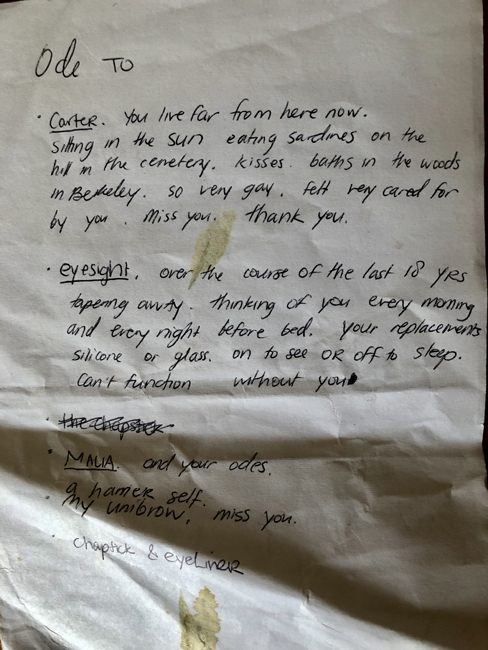 Ode TO
• Carter. You live far from here now.
sitting in the sun eating sardines on the
hill in the cemetery. kisses. baths in the woods
in Berkeley. so very gay. felt very cared for
by you. Miss you. Thank you.
• eyesight. over the course of the last 18 yrs
tapering away. thinking of you every morning
and every night before bed. your replacements
silicone or glass. on to see OR off to sleep.
can't function without you
• the chapstick
• MALIA. and your odes.
a hairier self.
• my unibrow, miss you.
• chapstick & eyeLiner